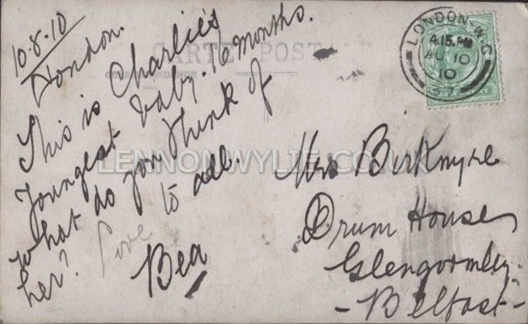 10.8.10
London.
This is Charlie's
Youngest baby. 16 months.
What do you think of
her? Love to all.
Bea
CARTE POST
LONDON. W.C
4.15. PM
AU 10
10
57
LENNONWYLIE.CO
Mrs Birkmyre
Drum House
Glengormley
- Belfast -